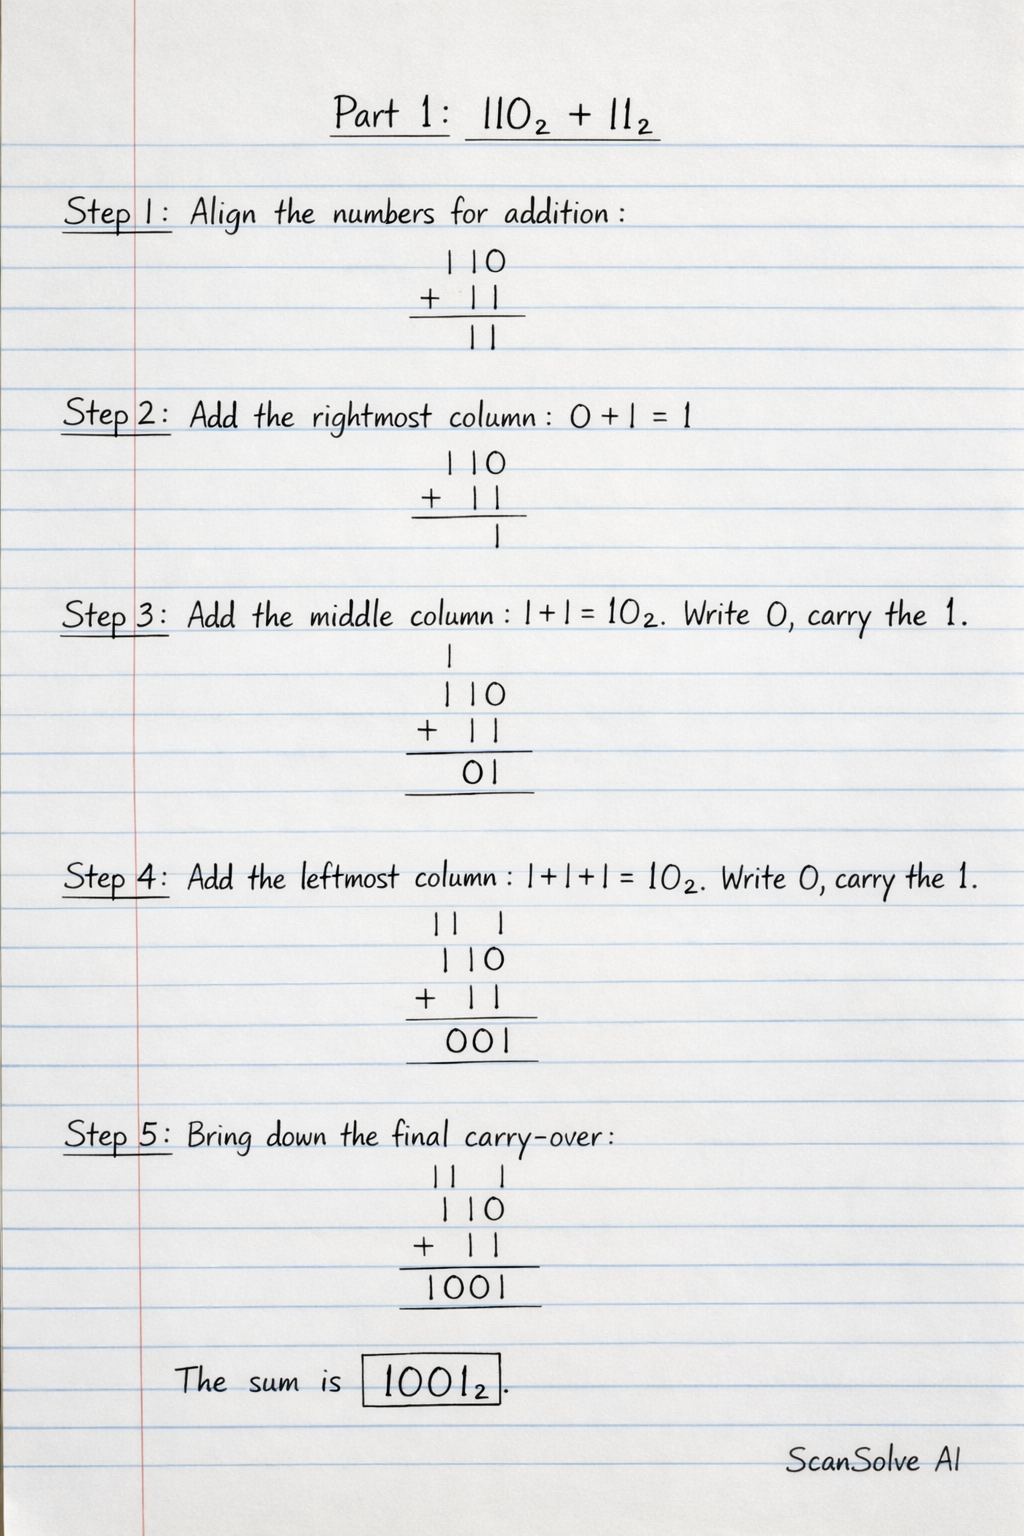 Part 1: 110₂ + 11₂
Step 1: Align the numbers for addition:
110
+ 11
11
Step 2: Add the rightmost column: 0 + 1 = 1
110
+ 11
1
Step 3: Add the middle column: 1 + 1 = 10₂. Write 0, carry the 1.
1
110
+ 11
01
Step 4: Add the leftmost column: 1 + 1 + 1 = 10₂. Write 0, carry the 1.
11 1
110
+ 11
001
Step 5: Bring down the final carry-over:
11 1
110
+ 11
1001
The sum is 1001₂.
ScanSolve AI